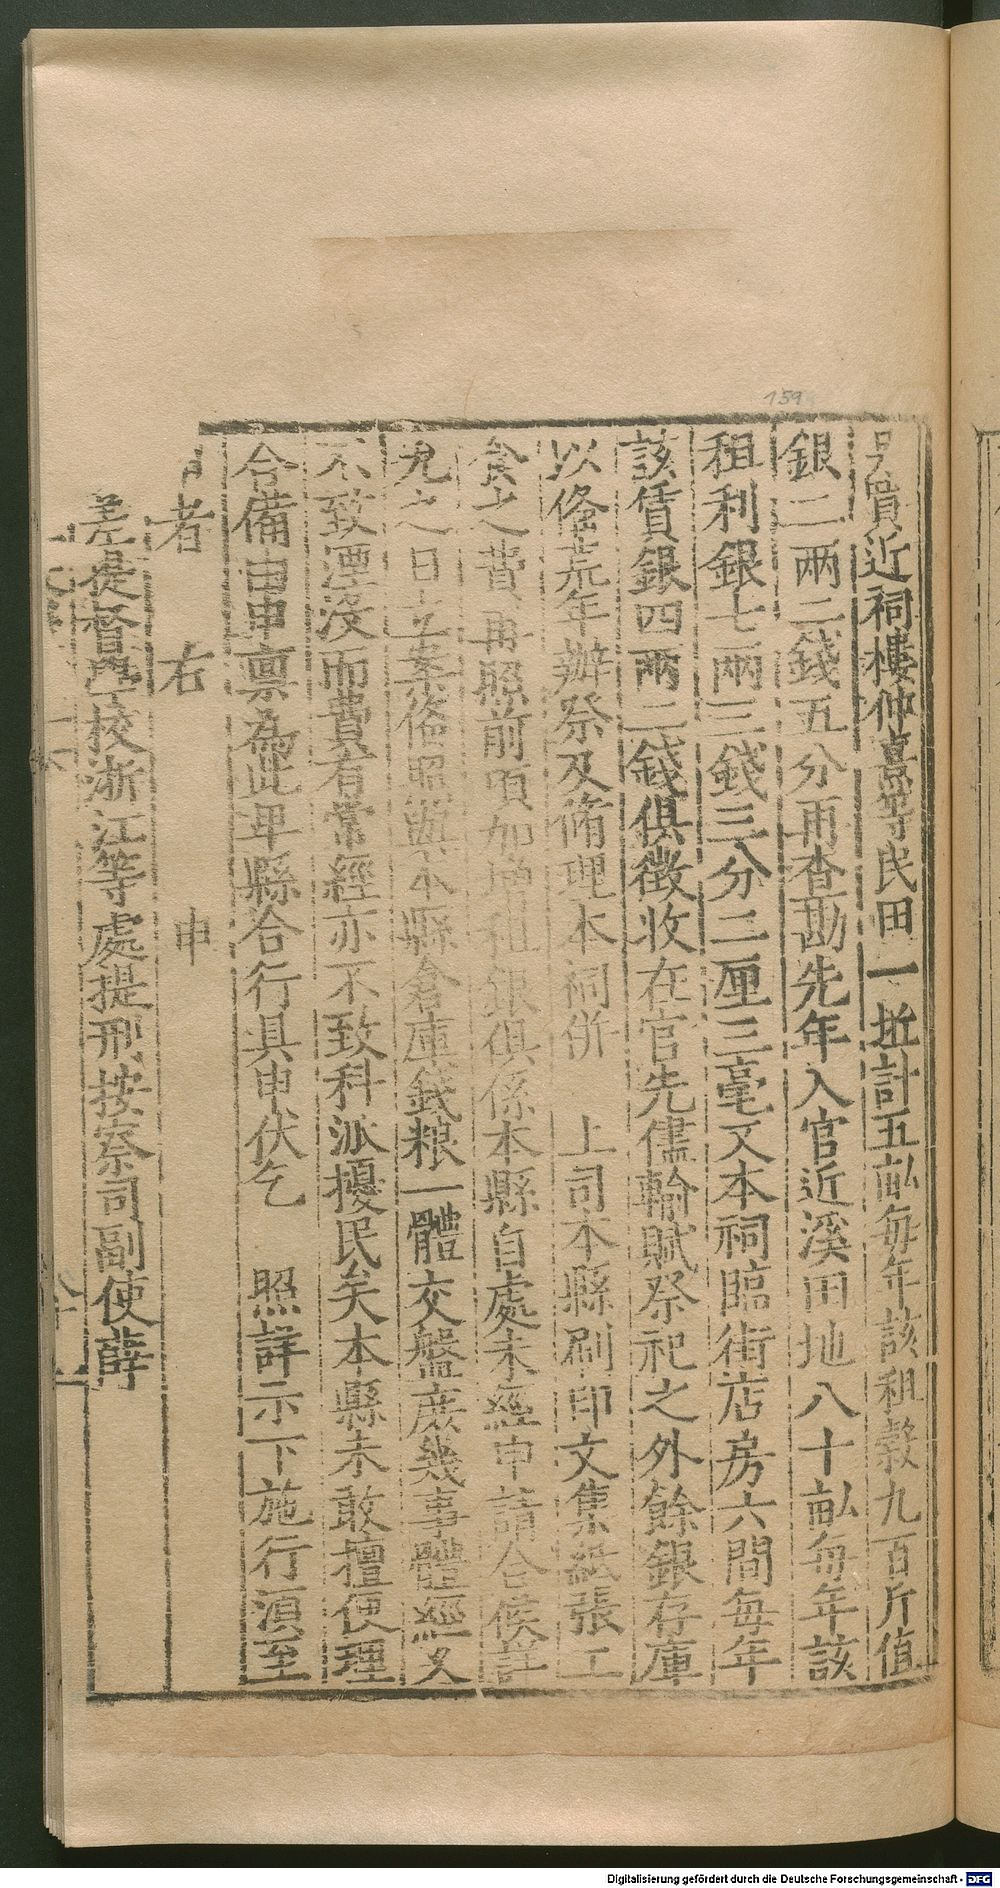 159
買近祠樓仲熹等民田一坵計五畝每年該租榖九百斤值
銀二兩二錢五分再查勘先年入官近溪田地八十畝每年該
租利銀七兩三錢三分二厘三毫又本祠臨街店房六間每年
該賃銀四兩二錢俱徵收在官先儘輸賦祭祀之外餘銀存庫
以俻荒年辦祭及脩理本祠併 上司本縣刷印文集紙張工
食之費再照前項加增租銀俱係本縣自處未經申請合候詳
允之日立案俻照與本縣倉庫錢粮一體交盤庶幾事體經久
不致湮沒而費有常經亦不致科派擾民矣本縣未敢擅便理
合備由申禀為此卑縣合行具申伏乞 照詳示下施行湏至
申者 右 申
差提督學校浙江等處提刑按察司副使薛
Digitalisierung gefördert durch die Deutsche Forschungsgemeinschaft - DFG